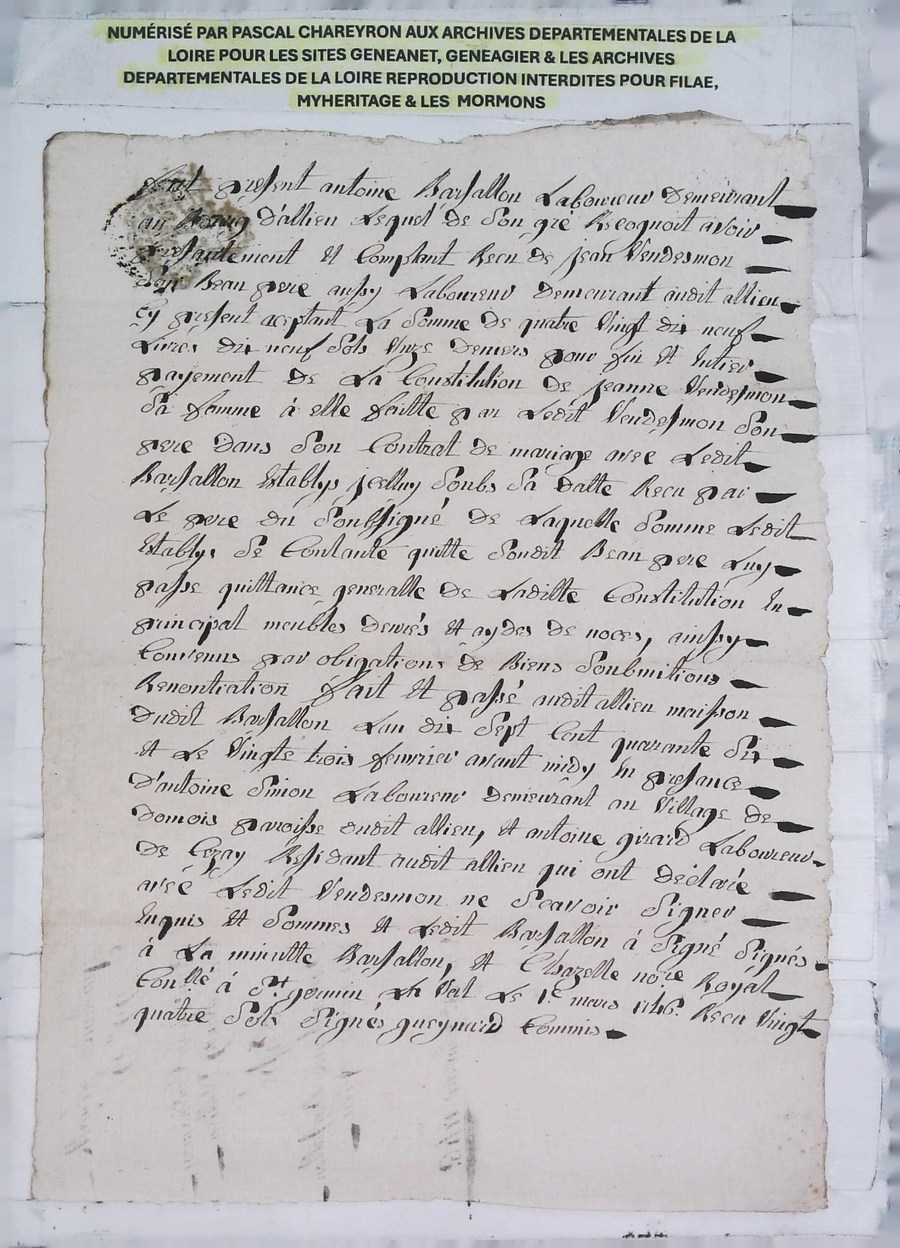 NUMÉRISÉ PAR PASCAL CHAREYRON AUX ARCHIVES DEPARTEMENTALES DE LA
LOIRE POUR LES SITES GENEANET, GENEAGIER & LES ARCHIVES
DEPARTEMENTALES DE LA LOIRE REPRODUCTION INTERDITES POUR FILAE,
MYHERITAGE & LES MORMONS
present antoine Barsallon Laboureur Demeurant
au Bourg d'allieu Lequel de Son gré Recognoit avoir
presantement et Comptant Receu de jean Vendesmon
Son Beau pere aussy Laboureur Demeurant audit allieu
Cy present aceptant La Somme de quatre Vingt dix neuf
Livres dix neuf Sols Unze Deniers pour fin et Entier
payement de La Constitution de jeanne Vendesmon
Sa femme à elle faitte par Ledit Vendesmon Son
pere dans Son Contrat de mariage avec Ledit
Barsallon Establys jcelluy Soubs Sa datte Receu par
Le pere du Soubsigné de Laquelle Somme Ledit
Establys Se Contante quitte Sondit Beau pere Luy
passe quittance generalle de Laditte Constitution En
principal meubles Denrés et aydes de noces, ainssy
Convenus par obligations de Biens Soubmitions
Renontiation fait et passé audit allieu maisson
dudit Barsallon Lan dix Sept Cent quarante Six
et Le Vingte trois fevrier avant midy En presance
D'antoine Simon Laboureur Demeurant au Village de
Domois paroisse dudit allieu, et antoine girard Laboureur
de Cezay Residant audit allieu qui ont declaré
avec Ledit Vendesmon ne Scavoir Signer
Enquis et Sommes et Ledit Barsallon à Signé Signés
à La minutte Barsallon, et Chazelle nore Royal
Conllé à St germin La Val Le 1e mars 1746. Receu Vingt
quatre Sols Signés gueynard Commis